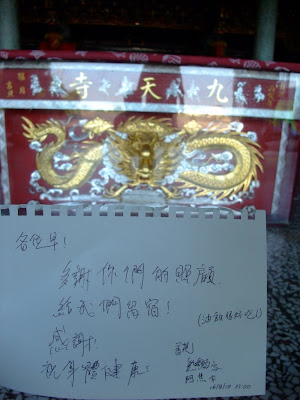 九天寺
各位早!
多謝你們的照顧
給我們留宿!
(油飯很好吃!)
感謝!
祝身體健康!
香港